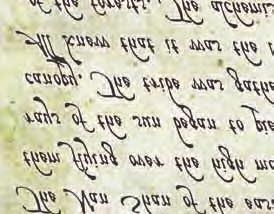 The Nan Shan of the eas
them flying over the high mo
rays of the sun began to pie
canopy. The tribe was gathe
All knew that it was the
of the forests. The alchemis